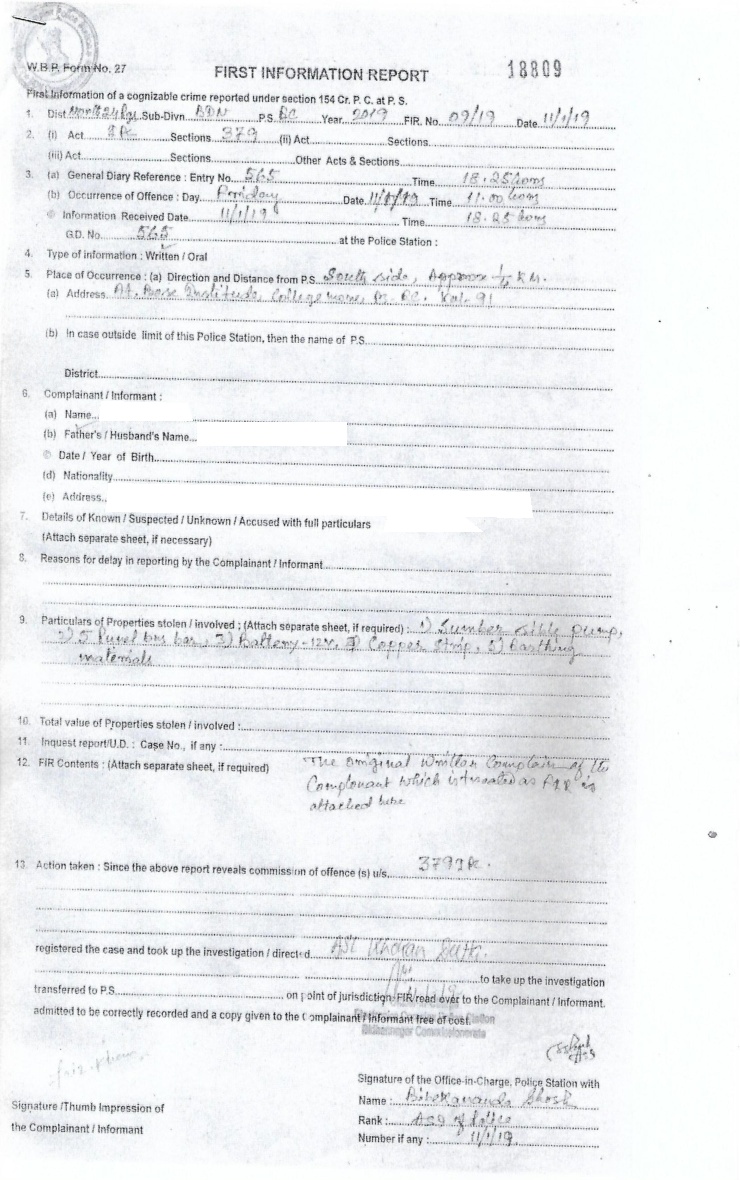 W.B.P. Form No. 27
FIRST INFORMATION REPORT
18809
First Information of a cognizable crime reported under section 154 Cr. P. C. at P. S.
1. Dist. North 24 Pgs. Sub-Divn. BDN P.S. BC Year 2019 FIR. No. 09/19 Date 11/1/19
2. (i) Act IPC Sections 379 (ii) Act Sections
(iii) Act Sections Other Acts & Sections
3. (a) General Diary Reference : Entry No. 565 Time 18.25 hours
(b) Occurrence of Offence : Day Date 11/1/19 Time 11.00 hours
Information Received Date 11/1/19 Time 18.25 hours
G.D. No. 565 at the Police Station :
4. Type of information : Written / Oral
5. Place of Occurrence : (a) Direction and Distance from P.S. South side, Approx 1/2 KM.
(a) Address At. Bose Institute, College more, Ps. BC. Kol-91
(b) In case outside limit of this Police Station, then the name of P.S.
District
6. Complainant / Informant :
(a) Name...
(b) Father's / Husband's Name...
Date / Year of Birth
(d) Nationality
(e) Address..
7. Details of Known / Suspected / Unknown / Accused with full particulars
(Attach separate sheet, if necessary)
8. Reasons for delay in reporting by the Complainant / Informant
9. Particulars of Properties stolen / involved ; (Attach separate sheet, if required) : 1) pump,
2) 5 bus bar, 3) Battery-12v, 4) Copper strip, 5) Earthing
materials
10. Total value of Properties stolen / involved :
11. Inquest report/U.D. : Case No., if any :
12. FIR Contents : (Attach separate sheet, if required) The original written Complain of the
which is treated as FIR is
attached here
13. Action taken : Since the above report reveals commission of offence (s) u/s. 379 IPC.
registered the case and took up the investigation / directed ASI
to take up the investigation
transferred to P.S. on point of jurisdiction. FIR read over to the Complainant / Informant.
admitted to be correctly recorded and a copy given to the Complainant / Informant free of cost.
Signature of the Office-in-Charge, Police Station with
Name : Bibekananda Ghosh
Signature /Thumb Impression of
Rank : of Police
the Complainant / Informant
Number if any : 11/1/19